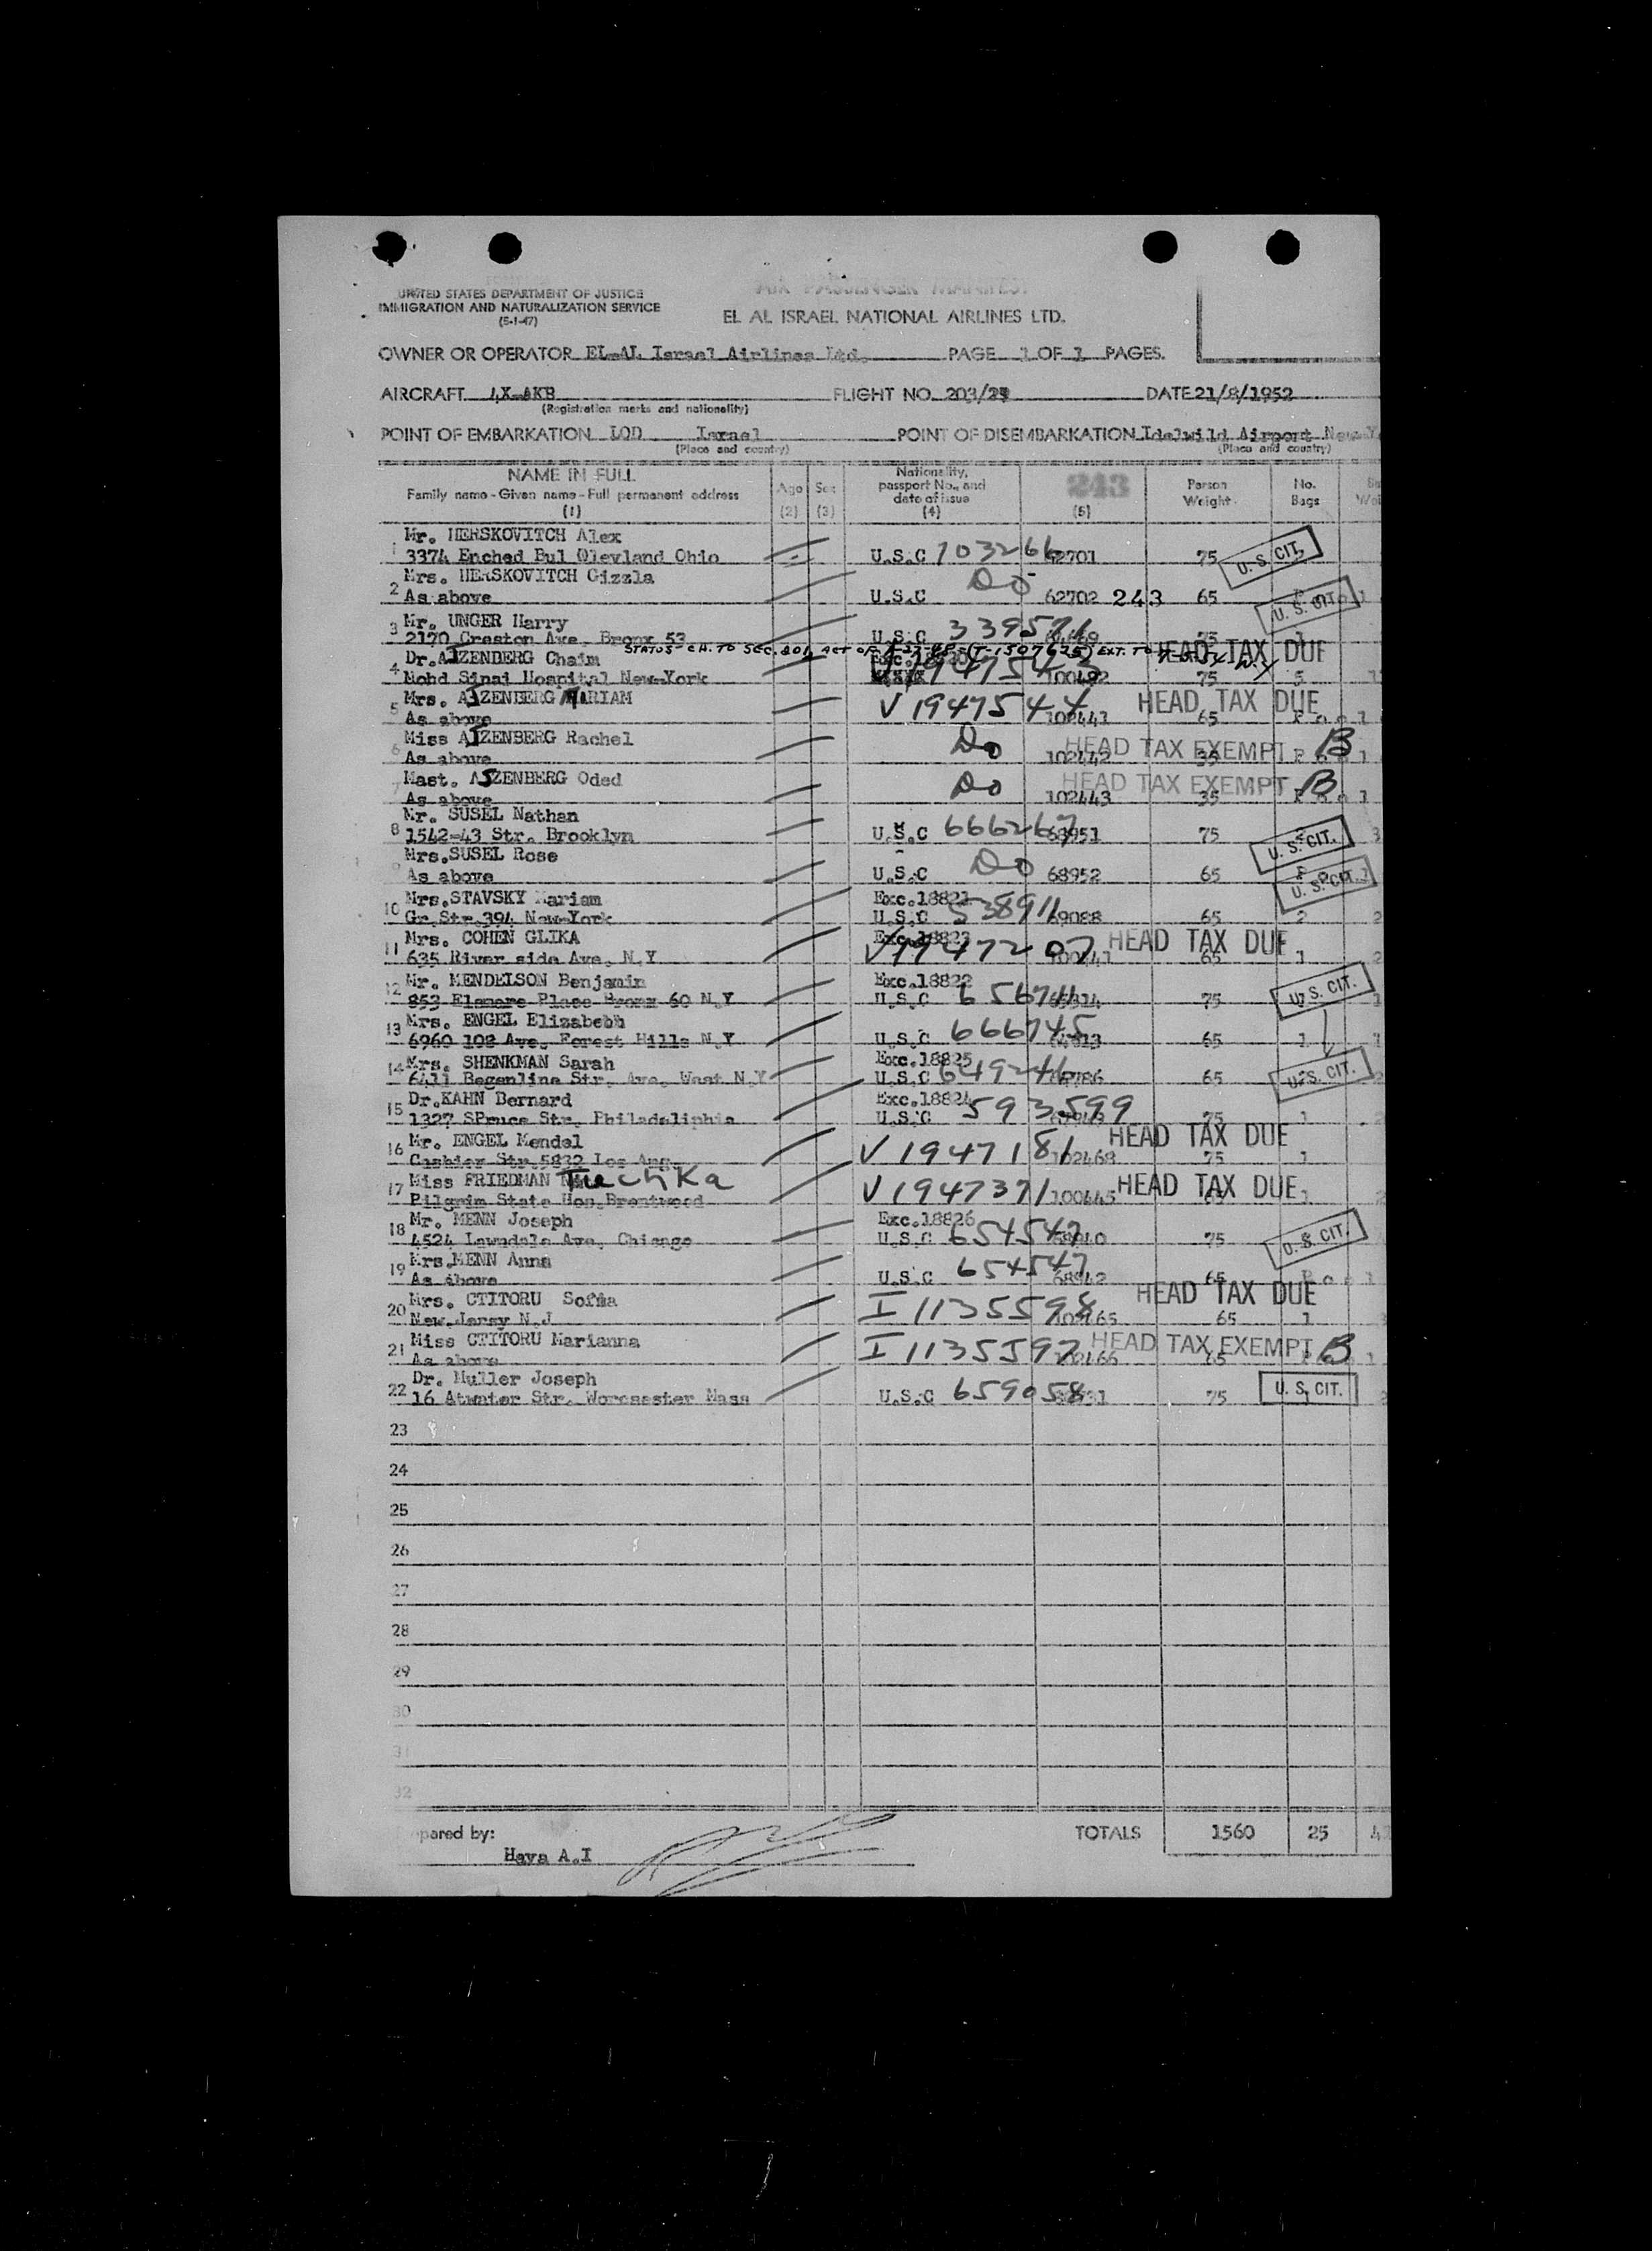 AIR PASSENGER MANIFEST
UNITED STATES DEPARTMENT OF JUSTICE
IMMIGRATION AND NATURALIZATION SERVICE
(5-1-47)
EL AL ISRAEL NATIONAL AIRLINES LTD.
OWNER OR OPERATOR EL-AL Israel Airlines Ltd. PAGE 1 OF 1 PAGES.
AIRCRAFT 4X-AKB FLIGHT NO. 203/ DATE 21/8/1952
(Registration marks and nationality)
POINT OF EMBARKATION LOD Israel POINT OF DISEMBARKATION Idelwild Airport New-Y
(Place and country) (Place and country)
NAME IN FULL
Family name - Given name - Full permanent address
(1)
Age
(2)
Sex
(3)
Nationality,
passport No., and
date of issue
(4)
243
(5)
Person
Weight
No.
Bags
Mr. HERSKOVITCH Alex
1 3374 Enched Bul Clevland Ohio U.S.C 103266 62701 75 U. S. CIT.
Mrs. HERSKOVITCH Gizzla
2 As above U.S.C Do 62702 243 65 U. S. CIT.
Mr. UNGER Harry
3 2170 Creston Ave. Bronx 53 U.S.C 339571 75
STATUS CH. TO SEC. 201 ACT OF (T-1507675) EXT. TO
Dr. AIZENBERG Chaim HEAD TAX DUE
4 Mohd Sinai Hospital New-York V1947543 75 5
Mrs. AIZENBERG MIRIAM V1947544 HEAD TAX DUE
5 As above 102441 65 Pool
Miss AIZENBERG Rachel Do HEAD TAX EXEMPT B
6 As above 102442 35 Pool
Mast. AIZENBERG Oded Do HEAD TAX EXEMPT B
7 As above 102443 35 Pool
Mr. SUSEL Nathan
8 1542-43 Str. Brooklyn U.S.C 666267 68951 75 U. S. CIT.
Mrs. SUSEL Rose
9 As above U.S.C Do 68952 65 U. S. CIT.
Mrs. STAVSKY Mariam Exc.18821
10 Gr. Str. 394 New-York U.S.C 538911 69088 65 2
Mrs. COHEN GLIKA Exc.18823 HEAD TAX DUE
11 635 River side Ave. N.Y V1947207 65 1
Mr. MENDELSON Benjamin Exc.18822
12 853 Elsmere Place Bronx 60 N.Y U.S.C 656711 75 U. S. CIT.
Mrs. ENGEL Elizabebh
13 6960 108 Ave. Forest Hills N.Y U.S.C 666745 65 1
Mrs. SHENKMAN Sarah Exc.18825
14 6411 Begenline Str. Ave. West N.Y U.S.C 649241 65 U. S. CIT.
Dr. KAHN Bernard Exc.18824
15 1327 SPruce Str. Philadaliphia U.S.C 593599 75 1
Mr. ENGEL Mendel HEAD TAX DUE
16 Cashier Str. 5832 Los Ang. V1947181 102468 75 1
Miss FRIEDMAN HEAD TAX DUE
17 Pilgrim State Hos. Brentwood V1947371 100445 65 1
Mr. MENN Joseph Exc.18826
18 4524 Lawndale Ave. Chicago U.S.C 654547 75 U. S. CIT.
Mrs. MENN Anna
19 As above U.S.C 654547 68942 65 Pool
Mrs. CTITORU Sofia HEAD TAX DUE
20 New.Jersy N.J I1135598 102465 65 1
Miss CTITORU Marianna HEAD TAX EXEMPT B
21 As above I1135597 102466 65 Pool
Dr. Muller Joseph
22 16 Atwater Str. Worcsester Mass U.S.C 659058 75 U. S. CIT.
23
24
25
26
27
28
29
30
31
32
pared by: TOTALS 1560 25
Hava A.I